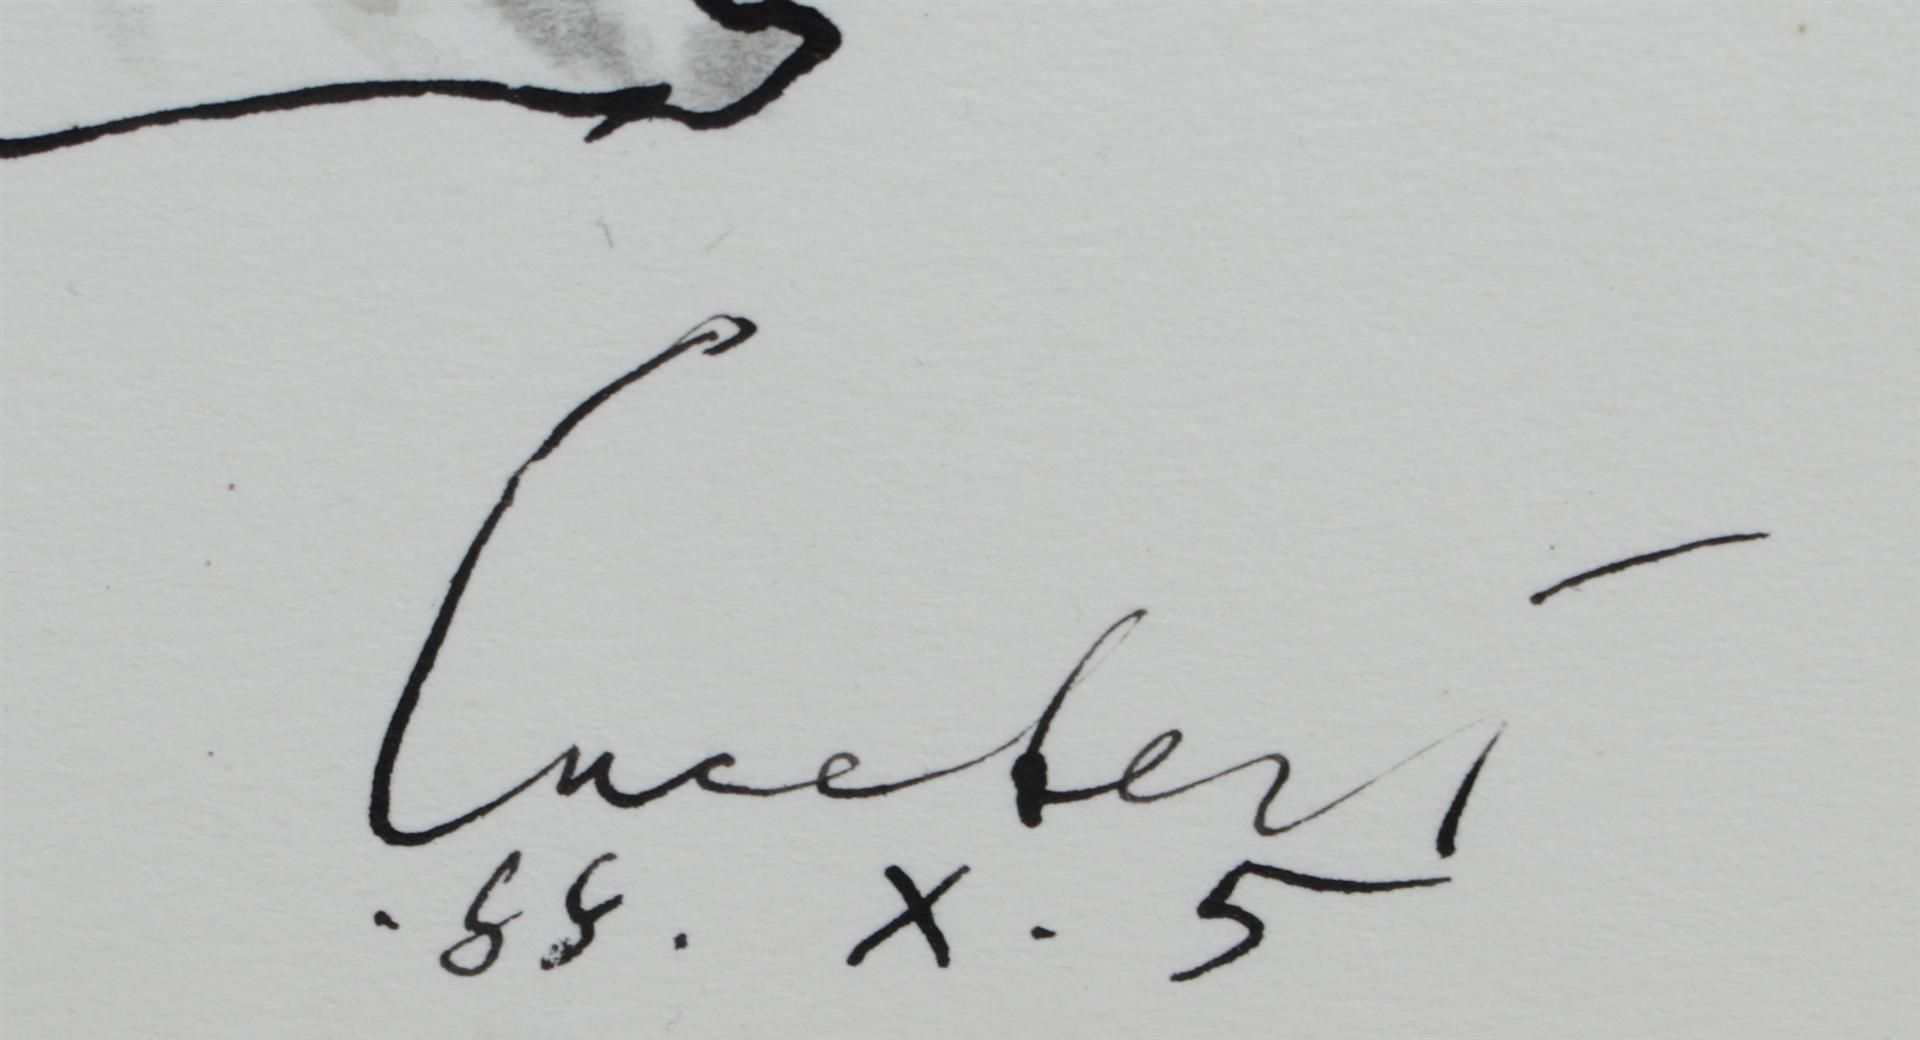 Lucebert
.88. X. 5